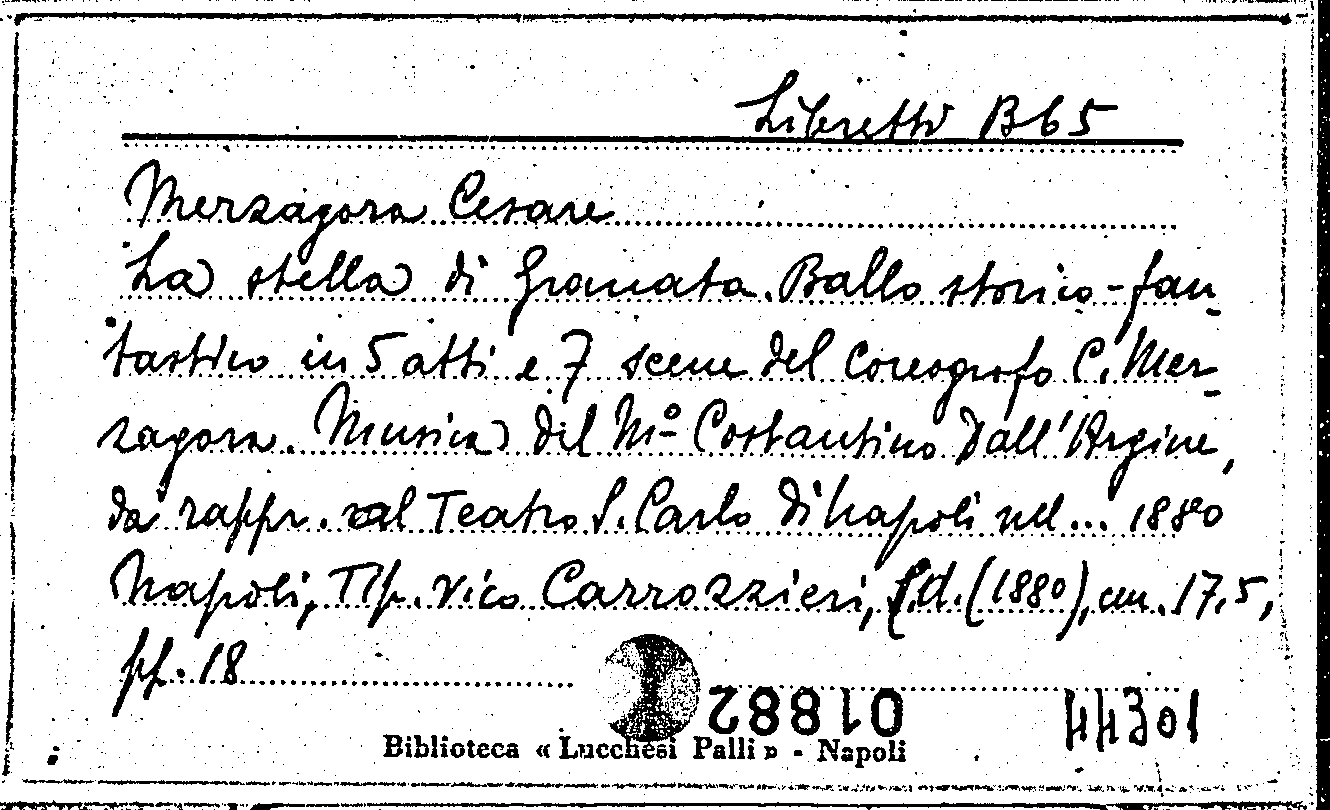 Libretti B65
Merzagora Cesare
La stella di Granata. Ballo storico-fan-
tastico in 5 atti e 7 scene del coreografo C. Mer-
zagora. Musica del Mº Costantino Dall'Argine,
da rappr. al Teatro S. Carlo di Napoli nel ... 1880
Napoli, Tip. vico Carrozzieri, s.d. (1880), cm. 17,5,
pp. 18
01882
10344
Biblioteca « Lucchesi Palli » - Napoli